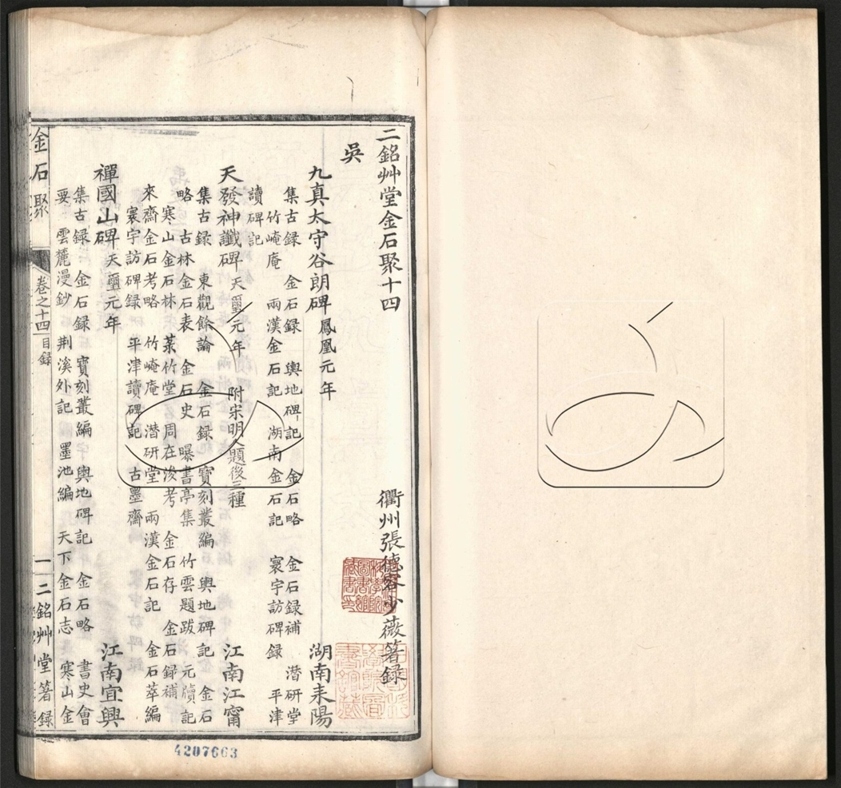 二銘艸堂金石聚十四
衢州張德容少薇著録
吳
九真太守谷朗碑 鳳凰元年 湖南耒陽
集古録 金石録 輿地碑記 金石略 金石録補 潛研堂
竹崦庵 兩漢金石記 湖南金石記 寰宇訪碑録 平津
讀碑記
天發神讖碑 天璽元年 附宋明人題後三種 江南江甯
集古録 東觀餘論 金石録 寶刻叢編 輿地碑記 金石
略 古林金石表 金石史 曝書亭集 竹雲題跋 元牘記
寒山金石林 菉竹堂 周在浚考 金石存 金石録補
來齋金石考略 竹崦庵 潛研堂 兩漢金石記 金石萃編
寰宇訪碑録 平津讀碑記 古墨齋
禪國山碑 天璽元年 江南宜興
集古録 金石録 寶刻叢編 輿地碑記 金石略 書史會
要 雲麓漫鈔 荆溪外記 墨池編 天下金石志 寒山金
金石聚 卷之十四 目録 一 二銘艸堂著録
4207663